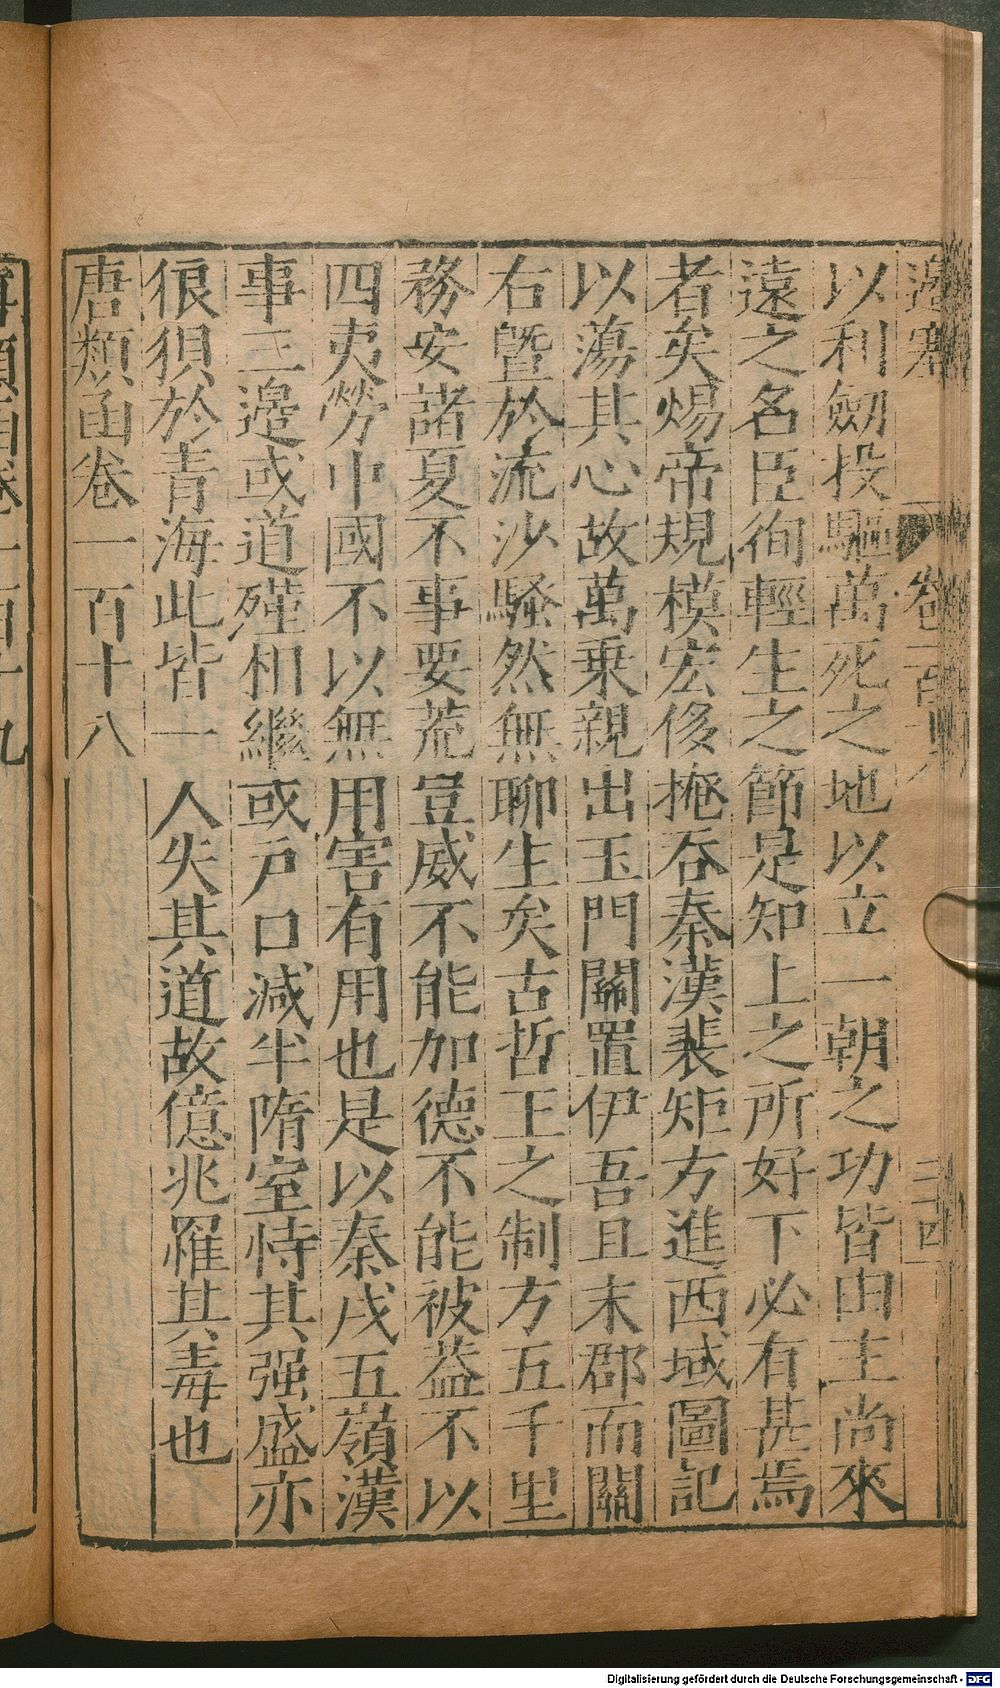 邊塞 卷一百十八 二十四
以利劒投驅萬死之地以立一朝之功皆由主尚來
遠之名臣徇輕生之節是知上之所好下必有甚焉
者矣煬帝規模宏侈掩吞秦漢裴矩方進西域圖記
以蕩其心故萬乗親出玉門關置伊吾且末郡而關
右曁於流沙騷然無聊生矣古哲王之制方五千里
務安諸夏不事要荒豈威不能加德不能被葢不以
四夷勞中國不以無用害有用也是以秦戍五嶺漢
事三邊或道殣相繼或戸口减半隋室恃其强盛亦
狼狽於青海此皆一人失其道故億兆罹其毒也
唐類函卷一百十八
Digitalisierung gefördert durch die Deutsche Forschungsgemeinschaft - DFG